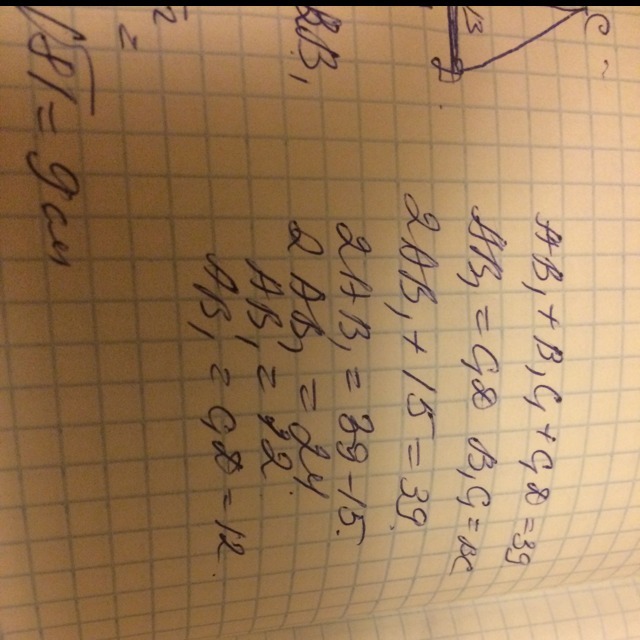 C
B
AB₁ + B₁C₁ + C₁B = 39
AB₁ = C₁B B₁C₁ = BC
2AB₁ + 15 = 39
2AB₁ = 39 - 15
2AB₁ = 24
AB₁ = 12
AB₁ = C₁B = 12
BB₁
√81 = 9 см